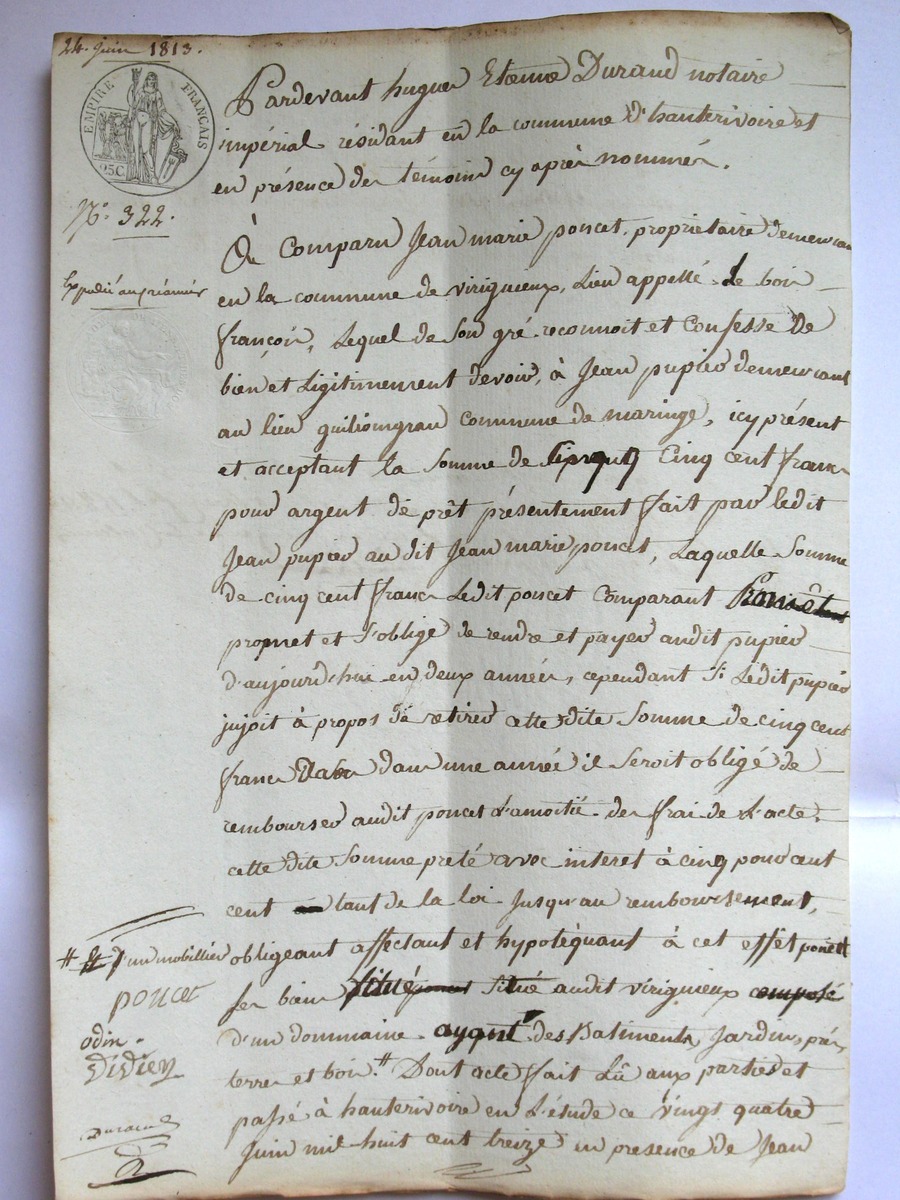 24. juin 1813.
EMPIRE FRANÇAIS
25C.
N.° 322.
Expedié au créancier
Pardevant hugues Etienne Durand notaire
impérial résidant en la commune d'hauterivoire et
en présence des témoins cy après nommés.
A Comparu Jean marie poncet, propriétaire demeurant
en la commune de virigneux, Lieu appellé Le bois
françois, Lequel de son gré reconnoit et Confesse de
bien et Ligitimement devoir, à Jean pupier demeurant
au lieu commune de maringe, icy présent
et acceptant la Somme de Cinq cent francs
pour argent de prêt présentement fait par ledit
Jean pupier au dit Jean marie poncet, Laquelle Somme
de cinq cent francs Ledit poncet Comparant
promet et s'oblige de rendre et payer audit pupier
d'aujourd'hui en deux années, cependant Si Ledit pupier
jujoit à propos de retirer cette dite Somme de cinq cent
francs dans une année il Seroit obligé de
rembourser audit poncet L'amoitié des frai de L'acte.
cette dite Somme preté avec interet à cinq pour cent
cent taut de la loi jusqu'au remboursement,
obligeant affectant et hypotéquant à cet effet poncet
ses biens Situé audit virigneux composé
d'un dommaine ayant des Batiments, Jardins, prés
terres et bois # Dont acte fait Lû aux parties et
passé à hauterivoire en L'étude ce vingt quatre
Juin mil huit cent treize en presence de Jean
# d'un mobillier
poncet
odin.
Didier
Durand